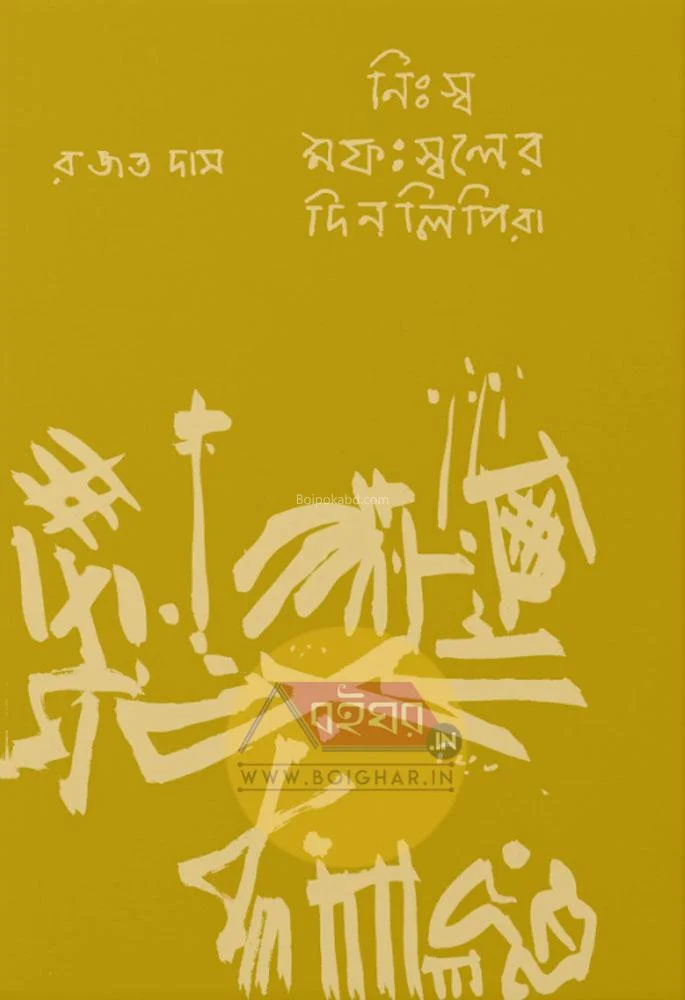 নিঃস্ব
রজত দাস
মফঃস্বলের
দিনলিপিরা
Bojpokabd.com
বইঘর
.IN
WWW.BOIGHAR.IN